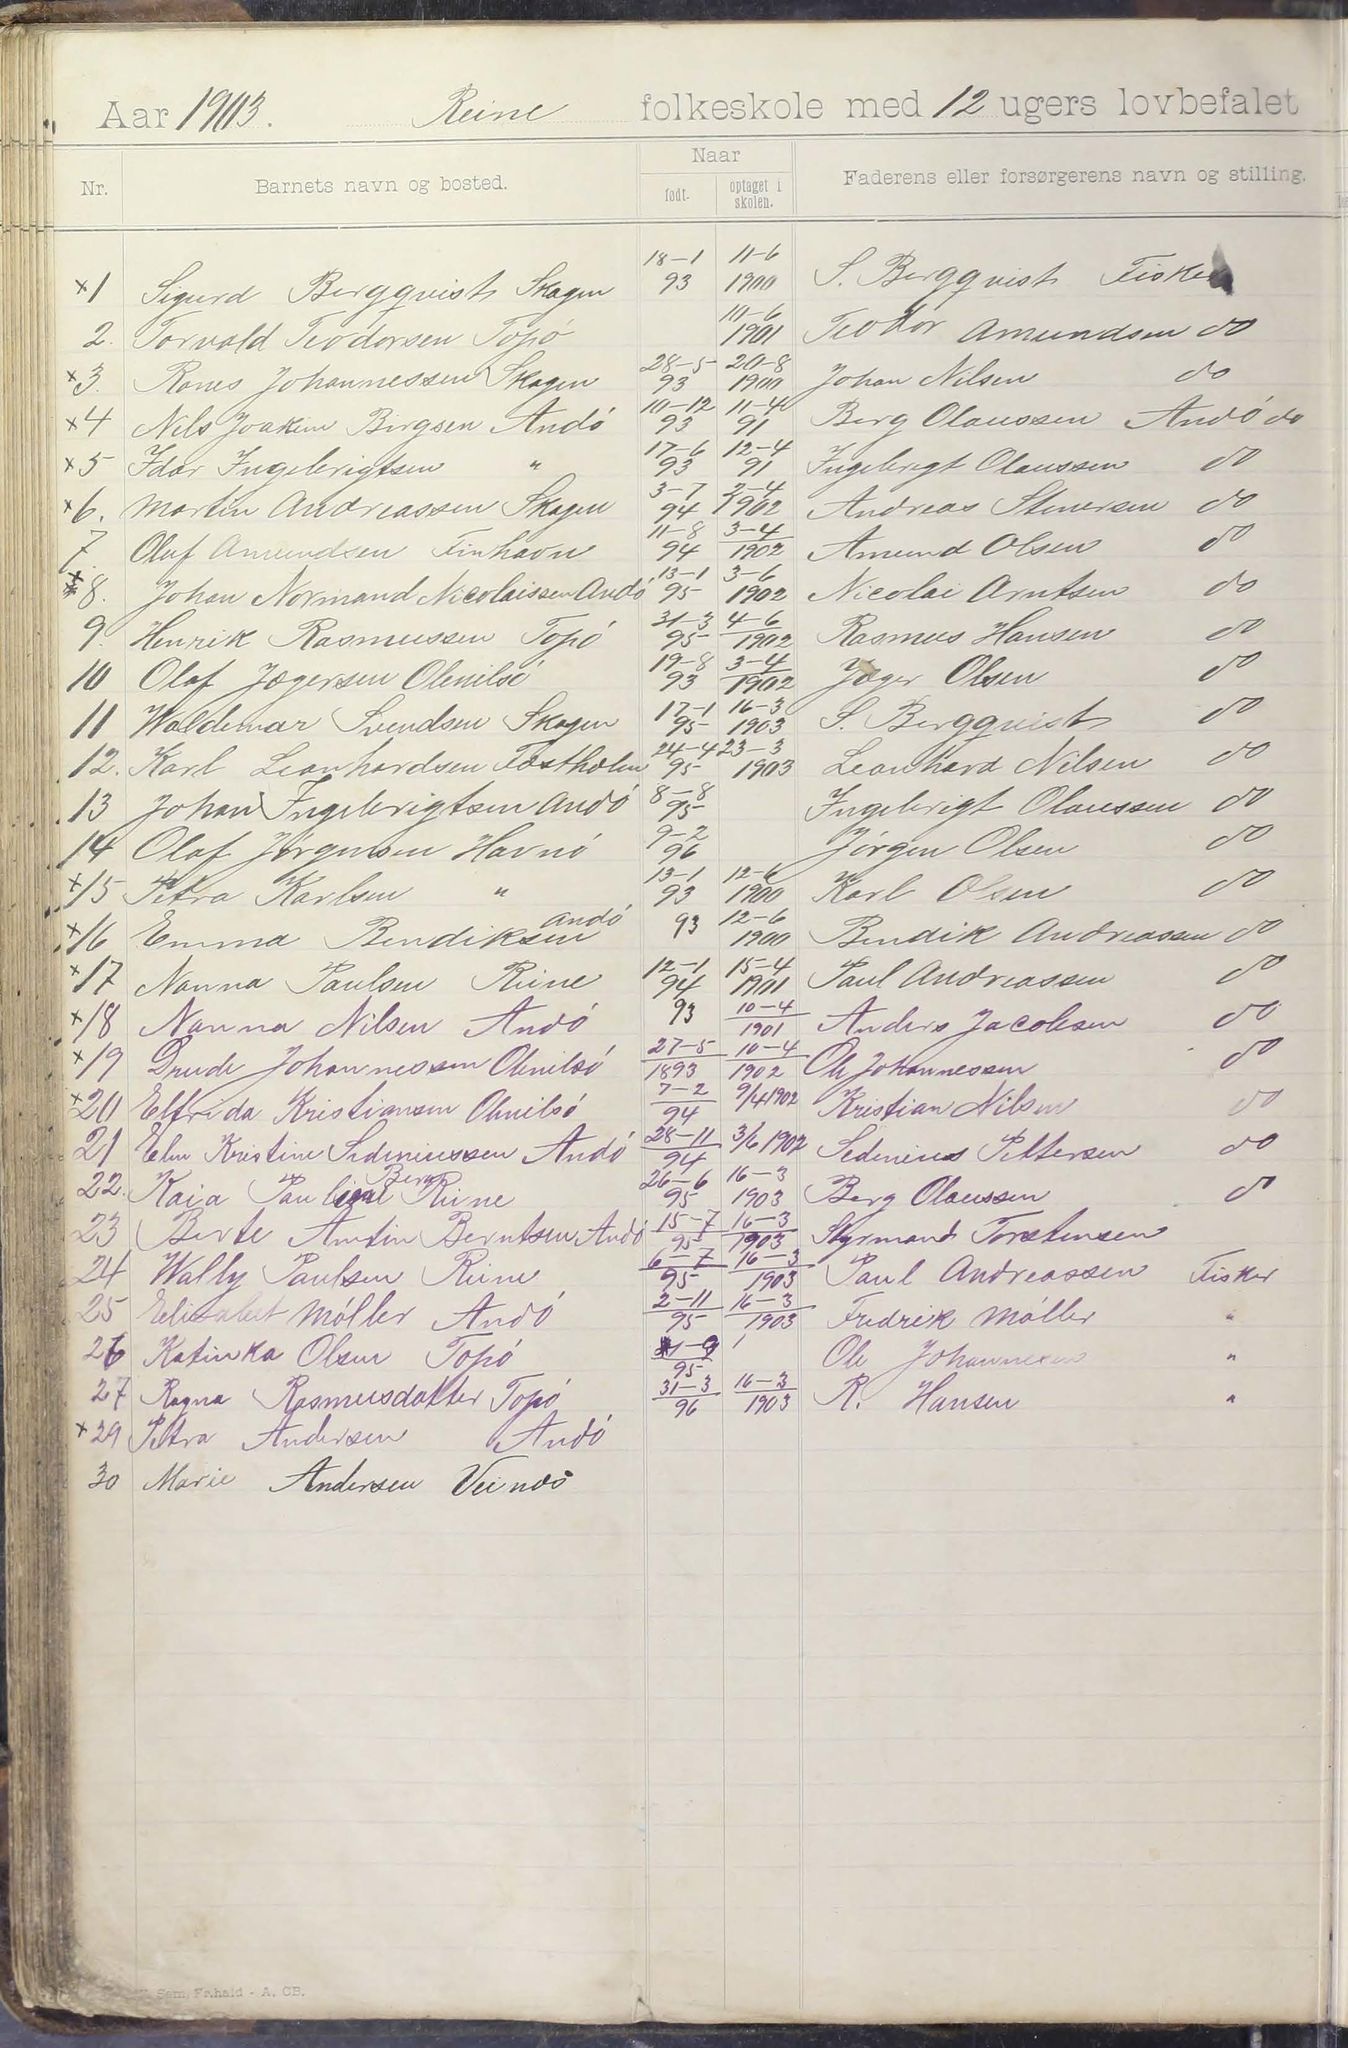 Aar 1903. Reine folkeskole med 12 ugers lovbefalet
Nr. Barnets navn og bosted. Naar Faderens eller forsørgerens navn og stilling.
født. optaget i skolen.
x1 Sigurd Bergqvist Skagen 18-1 93 11-6 1900 S. Bergqvist Fisker
2. Torvald Teodorsen Topö 10-6 1901 Teodor Amundsen do
x3. Rones Johannessen Skagen 28-5 93 20-8 1900 Johan Nilsen do
x4 Nils Joakim Birgsen Andö 10-12 93 11-4 91 Berg Olaussen Andö do
x5 Idar Ingebrigtsen " 17-6 93 12-4 91 Ingebrigt Olaussen do
x6. Martin Andreassen Skagen 3-7 94 2-4 1902 Andreas Stenersen do
7 Oluf Amundsen Finhavn 11-8 94 3-4 1902 Amund Olsen do
x8. Johan Normand Nicolaissen Andö 13-1 95 3-6 1902 Nicolai Arntsen do
9. Henrik Rasmussen Topö 31-3 95 4-6 1902 Rasmus Hansen do
10 Olaf Jægersen Olenilsö 19-8 93 3-4 1902 Jæger Olsen do
11 Waldemar Svendsen Skagen 17-1 95 16-3 1903 S. Bergqvist do
12. Karl Leonhardsen Tostholm 24-4 95 23-3 1903 Leonhard Nilsen do
13 Johan Ingebrigtsen Andö 8-8 95 Ingebrigt Olaussen do
14 Olaf Jørgensen Havnö 9-2 96 Jørgen Olsen do
x15 Petra Karlsen " 13-1 93 12-6 1900 Karl Olsen do
x16 Emma Bendiksen Andö 93 12-6 1900 Bendik Andreassen do
x17 Nanna Paulsen Reine 12-1 94 15-4 1901 Paul Andreassen do
x18 Nanna Nilsen Andö 93 10-4 1901 Anders Jacobsen do
x19 Drude Johannessen Olenilsö 27-5 1893 10-4 1902 Ole Johannessen do
x20 Elfrida Kristiansen Olenilsö 7-2 94 9/4 1902 Kristian Nilsen do
21 Elen Kristine Sedeniussen Andö 28-11 94 3/6 1902 Sedenius Pettersen do
22. Kaia Berg Reine 26-6 95 16-3 1903 Berg Olaussen do
23 Berte Antin Berntsen Andö 15-7 95 16-3 1903 Styrmand Torstensen
24 Wally Paulsen Reine 6-7 95 16-3 1903 Paul Andreassen Fisker
25 Elisabet Möller Andö 2-11 95 16-3 1903 Fredrik Möller "
26 Katinka Olsen Topö 95 Ole Johannessen "
27 Ragna Rasmusdatter Topö 31-3 96 16-3 1903 R. Hansen "
x29 Petra Andersen Andö
30 Marie Andersen Veinö